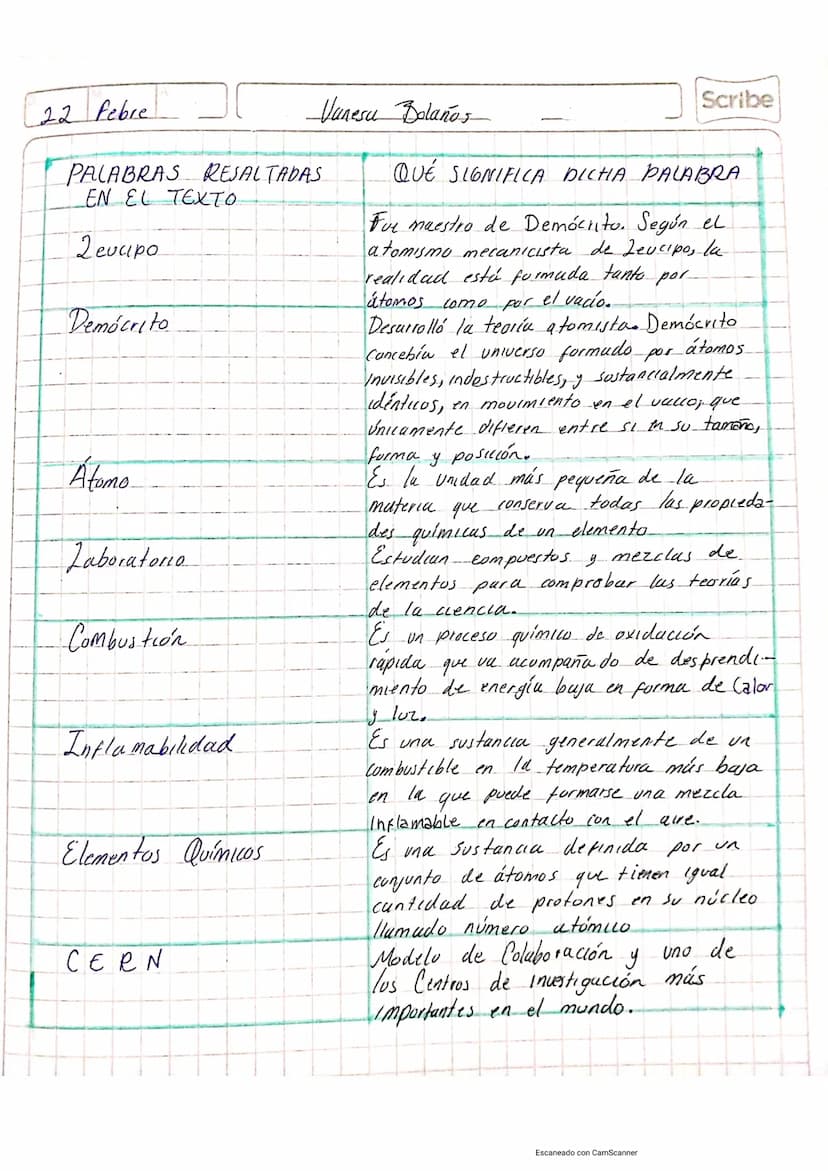 22 Febre
Vanesa Bolaños
Scribe
PALABRAS RESALTADAS
EN EL TEXTO
QUÉ SIGNIFICA DICHA PALABRA
Leucipo
Fue maestro de Demócrito. Según el
atomismo mecanicista de Leucipo, la
realidad está formada tanto por
átomos como por el vacío.
Demócrito
Desarrolló la teoría atomista. Demócrito
concebía el universo formado por átomos
invisibles, indestructibles, y sustancialmente
idénticos, en movimiento en el vacío, que
únicamente difieren entre si en su tamaño,
forma y posición.
Átomo
Es la unidad más pequeña de la
materia que conserva todas las propieda-
des químicas de un elemento
Laboratorio
Estudian compuestos y mezclas de
elementos para comprobar las teorías
de la ciencia.
Combustión
Es un proceso químico de oxidación
rápida que va acompañado de desprendi-
miento de energía baja en forma de Calor
y luz.
Inflamabilidad
Es una sustancia generalmente de un
combustible en la temperatura más baja
en la que puede formarse una mezcla
Inflamable en contacto con el aire.
Elementos Químicos
Es una sustancia definida por un
conjunto de átomos que tienen igual
cantidad de protones en su núcleo
llamado número atómico
CERN
Modelo de Colaboración y uno de
los Centros de investigación más
importantes en el mundo.
Escaneado con CamScanner